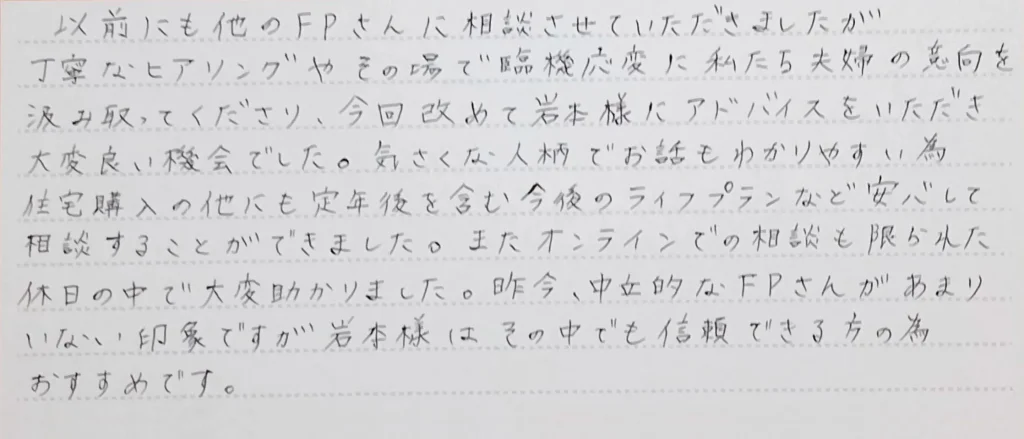 以前にも他のFPさんに相談させていただきましたが
丁寧なヒアリングやその場で臨機応変に私たち夫婦の意向を
汲み取ってくださり、今回改めて岩本様にアドバイスをいただき
大変良い機会でした。気さくな人柄でお話もわかりやすい為
住宅購入の他にも定年後を含む今後のライフプランなど安心して
相談することができました。またオンラインでの相談も限られた
休日の中で大変助かりました。昨今、中立的なFPさんがあまり
いない印象ですが岩本様はその中でも信頼できる方の為
おすすめです。